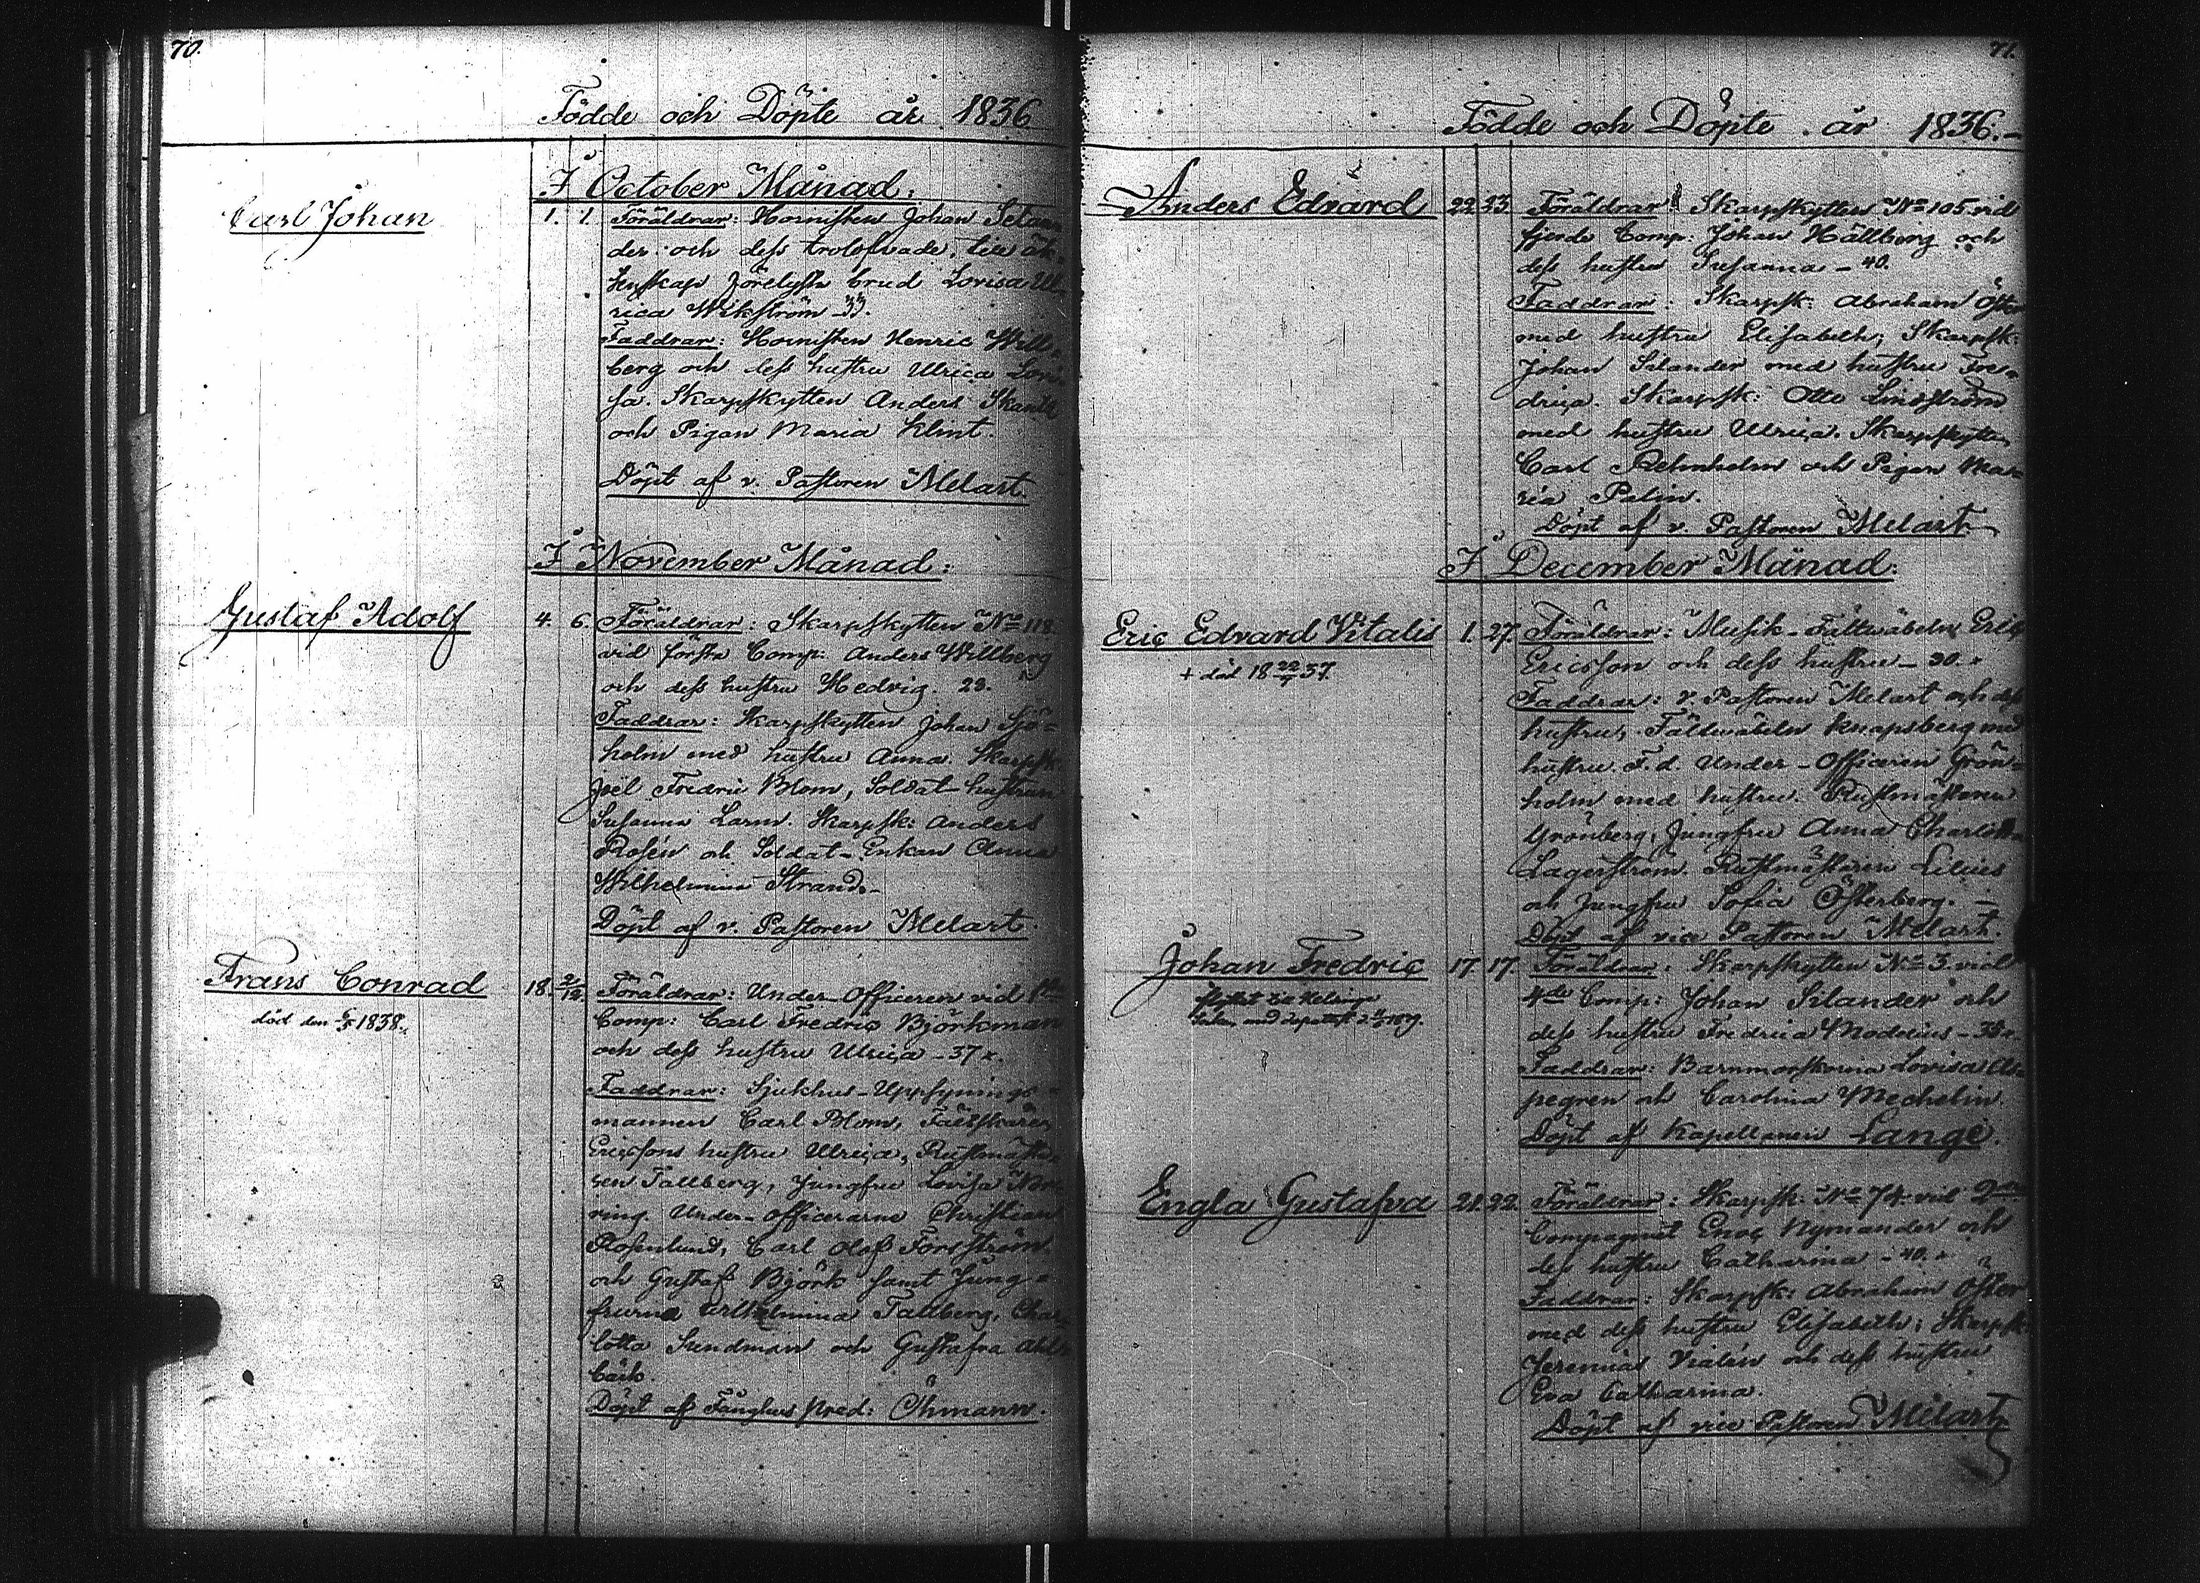 70.
Födde och Döpte år 1836
I October Månad:
Carl Johan
1. 1. Föräldrar: Hornisten Johan Selan
der och dess trolofvade, till äk
tenskap förelyste brud Lovisa Ul
rica Wikström 33.
Faddrar: Hornisten Henric Will-
berg och dess hustru Ulrica Lovi
sa. Skarpskytten Anders
och Pigan Maria Klint.
Döpt af v. Pastoren Melart.
I November Månad:
Gustaf Adolf
4. 6. Föräldrar: Skarpskytten No 118.
vid förste Comp: Anders Willberg
och dess hustru Hedvig. 23.
Faddrar: Skarpskytten Johan Sjö-
holm med hustru Anna. Skarpsk:
Joël Fredric Blom, Soldat-hustrun
Susanna Larm. Skarpsk: Anders
Rosén och Soldat-Enkan Anna
Wilhelmina Strand.-
Döpt af v. Pastoren Melart.
Frans Conrad
död den 6/5 1838.
18. 2/12. Föräldrar: Under-Officeren vid
Comp: Carl Fredric Björkman
och dess hustru Ulrica - 37
Faddrar: Sjukhus-Uppsynings-
mannen Carl Blom, Fältskären
Ericssons hustru Ulrica, Rustmästa-
ren Tallberg, Jungfru Lovisa Nor
ring. Under-officerarne Christian
Rosenlund, Carl Olof Forsström
och Gustaf Björk samt Jung-
frurna Wilhelmina Tallberg, Char-
lotta Sundman och Gustafva Ahl
bäck.
Döpt af Fånghus pred: Öhmann.
71.
Födde och Döpte år 1836.-
Anders Edvard
22. 23. Föräldrar: Skarpskytten No 105 vid
fjerde Comp: Johan Hällberg och
dess hustru Susanna - 40.
Faddrar: Skarpsk: Abraham Öster
med hustru Elisabeth, Skarpsk:
Johan Silander med hustru Fre-
drica. Skarpsk: Otto Lindström
med hustru Ulrica. Skarpskytten
Carl Rehnholm och Pigan Ma-
ria Palin.
Döpt af v. Pastoren Melart
I December Månad:
Eric Edvard Vitalis
+ död 18 22/7 37.
1. 27. Föräldrar: Musik-Fältwäbeln Eric
Ericsson och dess hustru - 30.
Faddrar: v. Pastoren Melart och dess
hustru, Fältwäbeln Knapsberg med
hustru. F.d. Under-Officeren Grön-
holm med hustru. Rustmästaren
Grönberg, Jungfru Anna Charlotta
Lagerström. Rustmästaren Lilius
och Jungfru Sofia Österberg. -
Döpt af vice Pastoren Melart.
Johan Fredric
flyttat till Helsing
17. 17. Föräldrar: Skarpskytten No 3. vid
4de Comp: Johan Silander och
dess hustru Fredrica Modenius - 38
Faddrar: Barnmorskorna Lovisa As-
pegren och Carolina Mechelin
Döpt af Kapellanen Lange.
Engla Gustafva
21. 22. Föräldrar: Skarpsk. No 74 vid 2dra
Compagniet Enoc Nymander och
dess hustru Catharina - 40.
Faddrar: Skarpsk: Abraham Öster
med dess hustru Elisabeth; Skarpsk:
Jeremias Vialén och dess hustru
Eva Catharina.
Döpt af vice Pastoren Melart